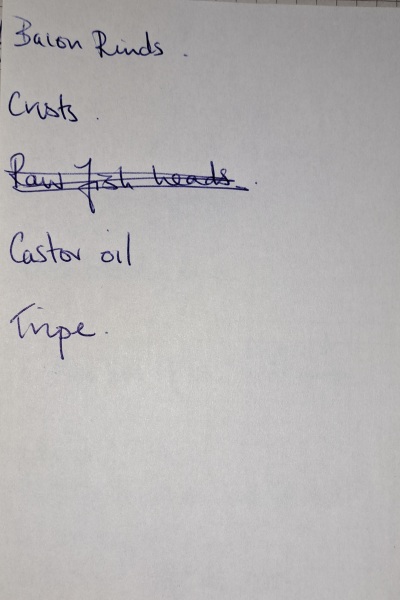 Bacon Rinds.
Crusts.
Raw fish heads.
Castor oil
Tripe.